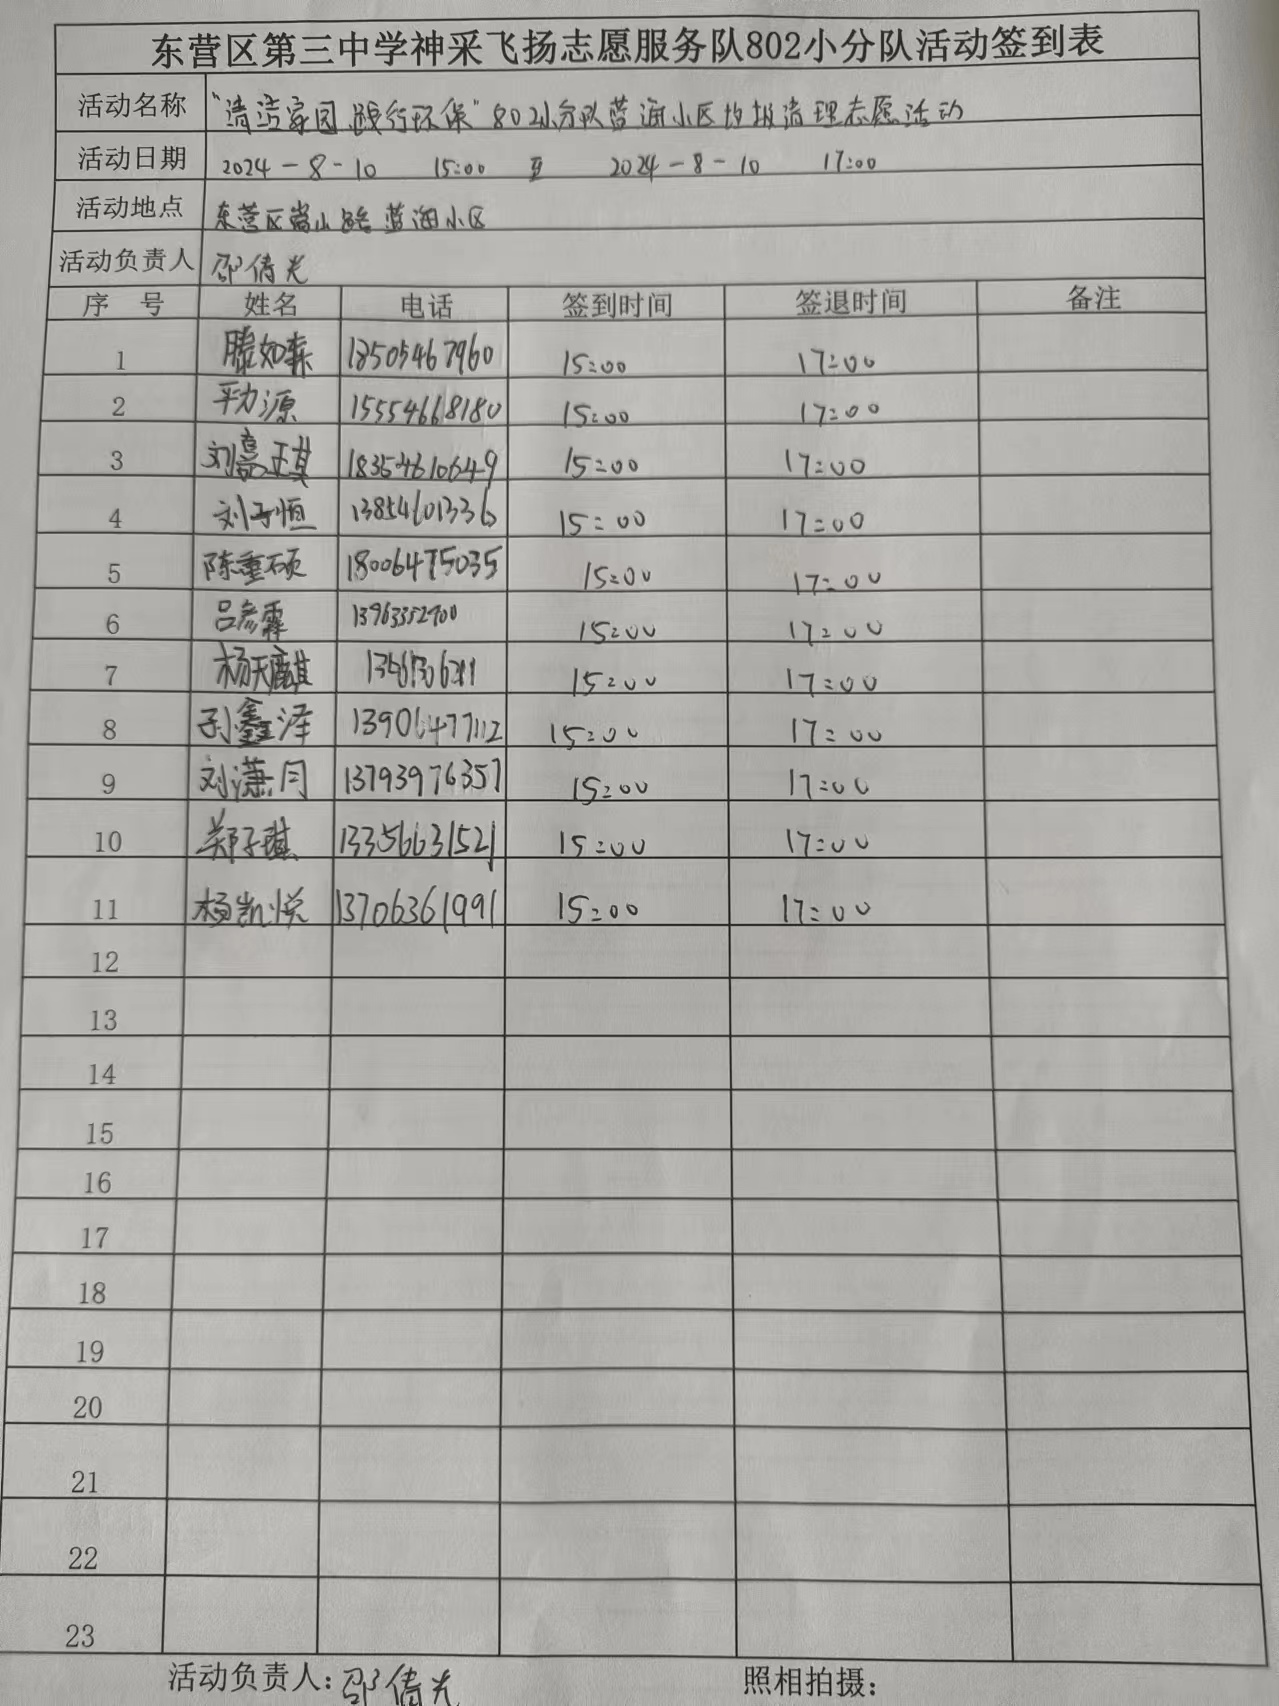 东营区第三中学神采飞扬志愿服务队802小分队活动签到表
活动名称 "清洁家园 践行环保"802小分队蓝海小区垃圾清理志愿活动
活动日期 2024-8-10 15:00 至 2024-8-10 17:00
活动地点 东营区嵩山路蓝海小区
活动负责人 邵倩光
序 号 姓名 电话 签到时间 签退时间 备注
1 滕如森 18505467960 15:00 17:00
2 15554668180 15:00 17:00
3 18354610649 15:00 17:00
4 刘子恒 13854601336 15:00 17:00
5 陈重硕 18006475035 15:00 17:00
6 吕彦霖 13963352900 15:00 17:00
7 杨天麒 15:00 17:00
8 鑫泽 15:00 17:00
9 刘潇月 13793976357 15:00 17:00
10 郑子琪 13356631521 15:00 17:00
11 杨凯悦 13706361991 15:00 17:00
12
13
14
15
16
17
18
19
20
21
22
23
活动负责人: 邵倩光 照相拍摄: